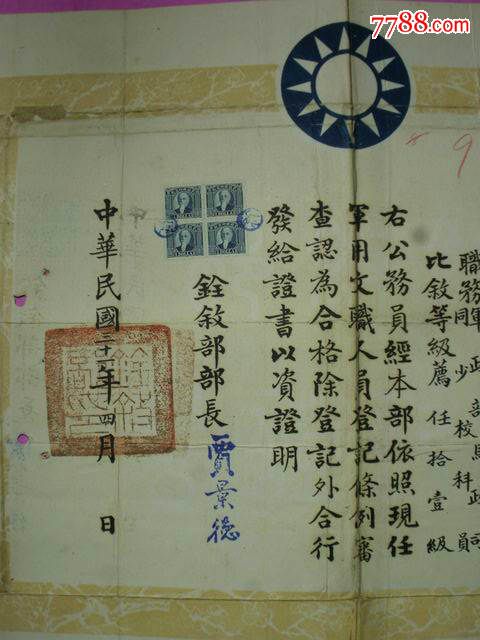 7788.com
9
職務軍政部馬政司
同少校科員
比敘等級薦任拾壹級
右公務員經本部依照現任
軍用文職人員登記條例審
查認為合格除登記外合行
發給證書以資證明
銓敘部部長賈景德
中華民國三十六年四月 日